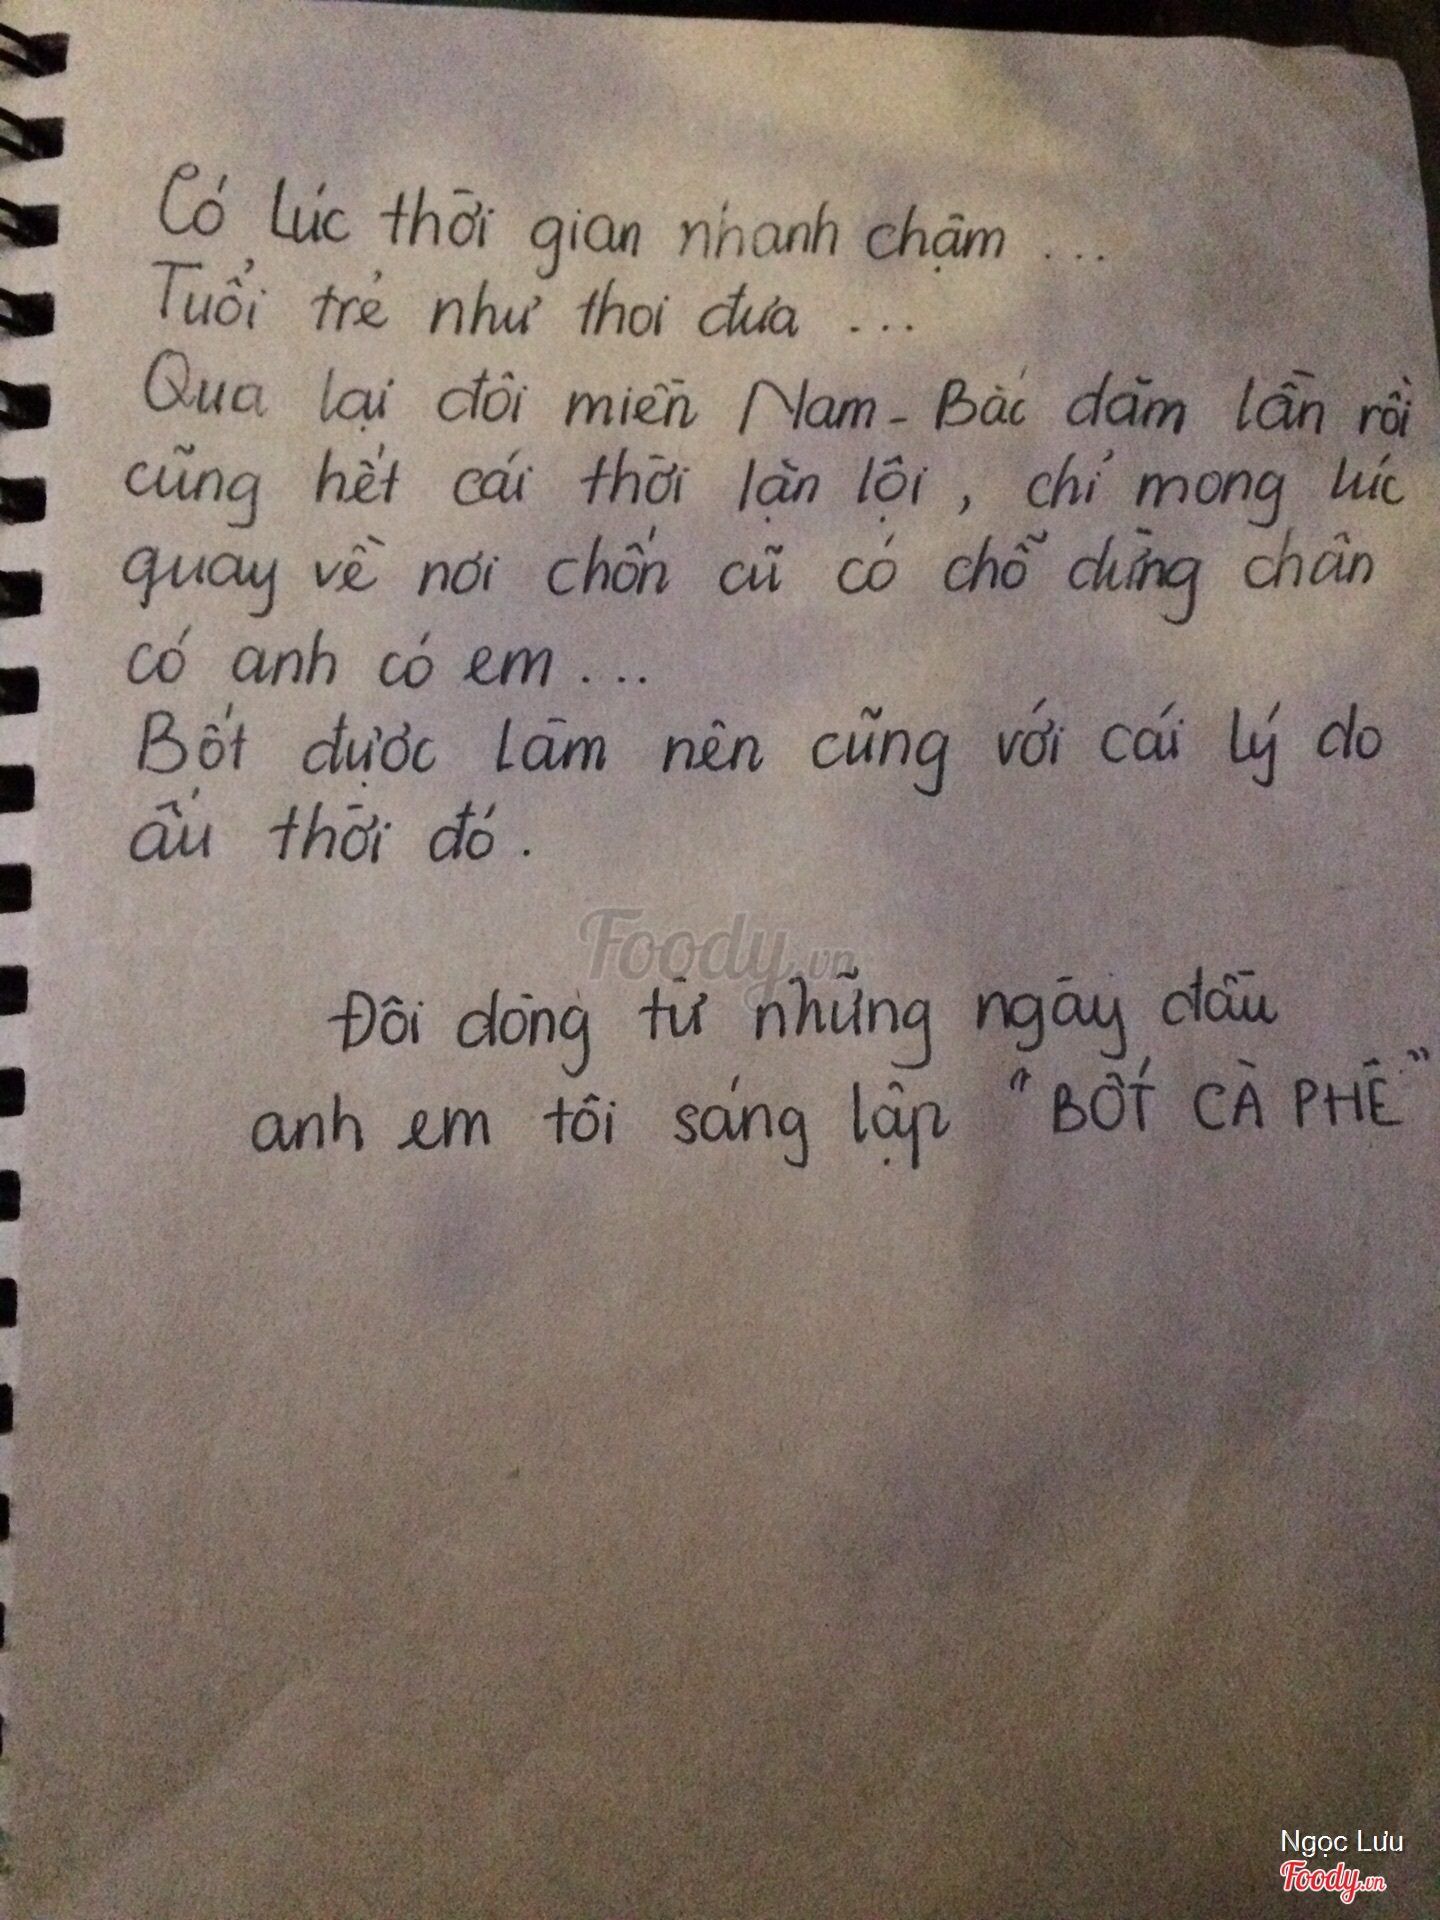 Có lúc thời gian nhanh chậm ...
Tuổi trẻ như thoi đưa ...
Qua lại đôi miền Nam - Bắc dăm lần rồi
cũng hết cái thời lặn lội, chỉ mong lúc
quay về nơi chốn cũ có chỗ dừng chân
có anh có em ...
Bốt được làm nên cũng với cái lý do
ấu thời đó.
Foody.vn
Đôi dòng từ những ngày đầu
anh em tôi sáng lập "BỐT CÀ PHÊ"
Ngọc Lưu
Foody.vn